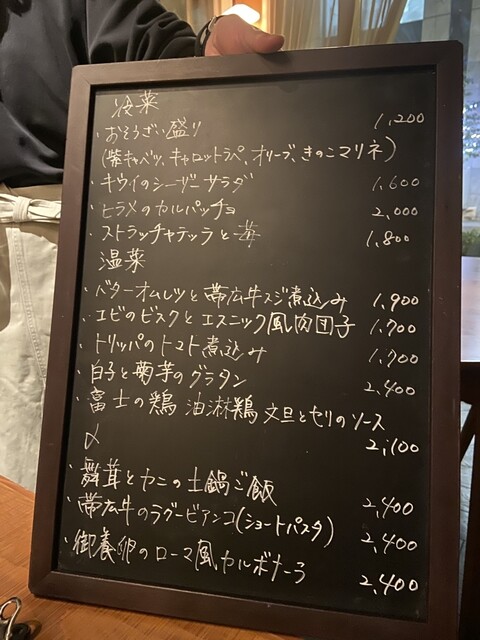 冷菜
・おそうざい盛り 1,200
(紫キャベツ、キャロットラペ、オリーブ、きのこマリネ)
・キウイのシーザーサラダ 1,600
・ヒラメのカルパッチョ 2,000
・ストラッチャテッラと苺 1,800
温菜
・バターオムレツと帯広牛スジ煮込み 1,900
・エビのビスクとエスニック風肉団子 1,700
・トリッパのトマト煮込み 1,700
・白子と菊芋のグラタン 2,400
・富士の鶏 油淋鶏 文旦とセリのソース
2,100
〆
・舞茸とカニの土鍋ご飯 2,400
・帯広牛のラグービアンコ(ショートパスタ) 2,400
・御養卵のローマ風カルボナーラ 2,400